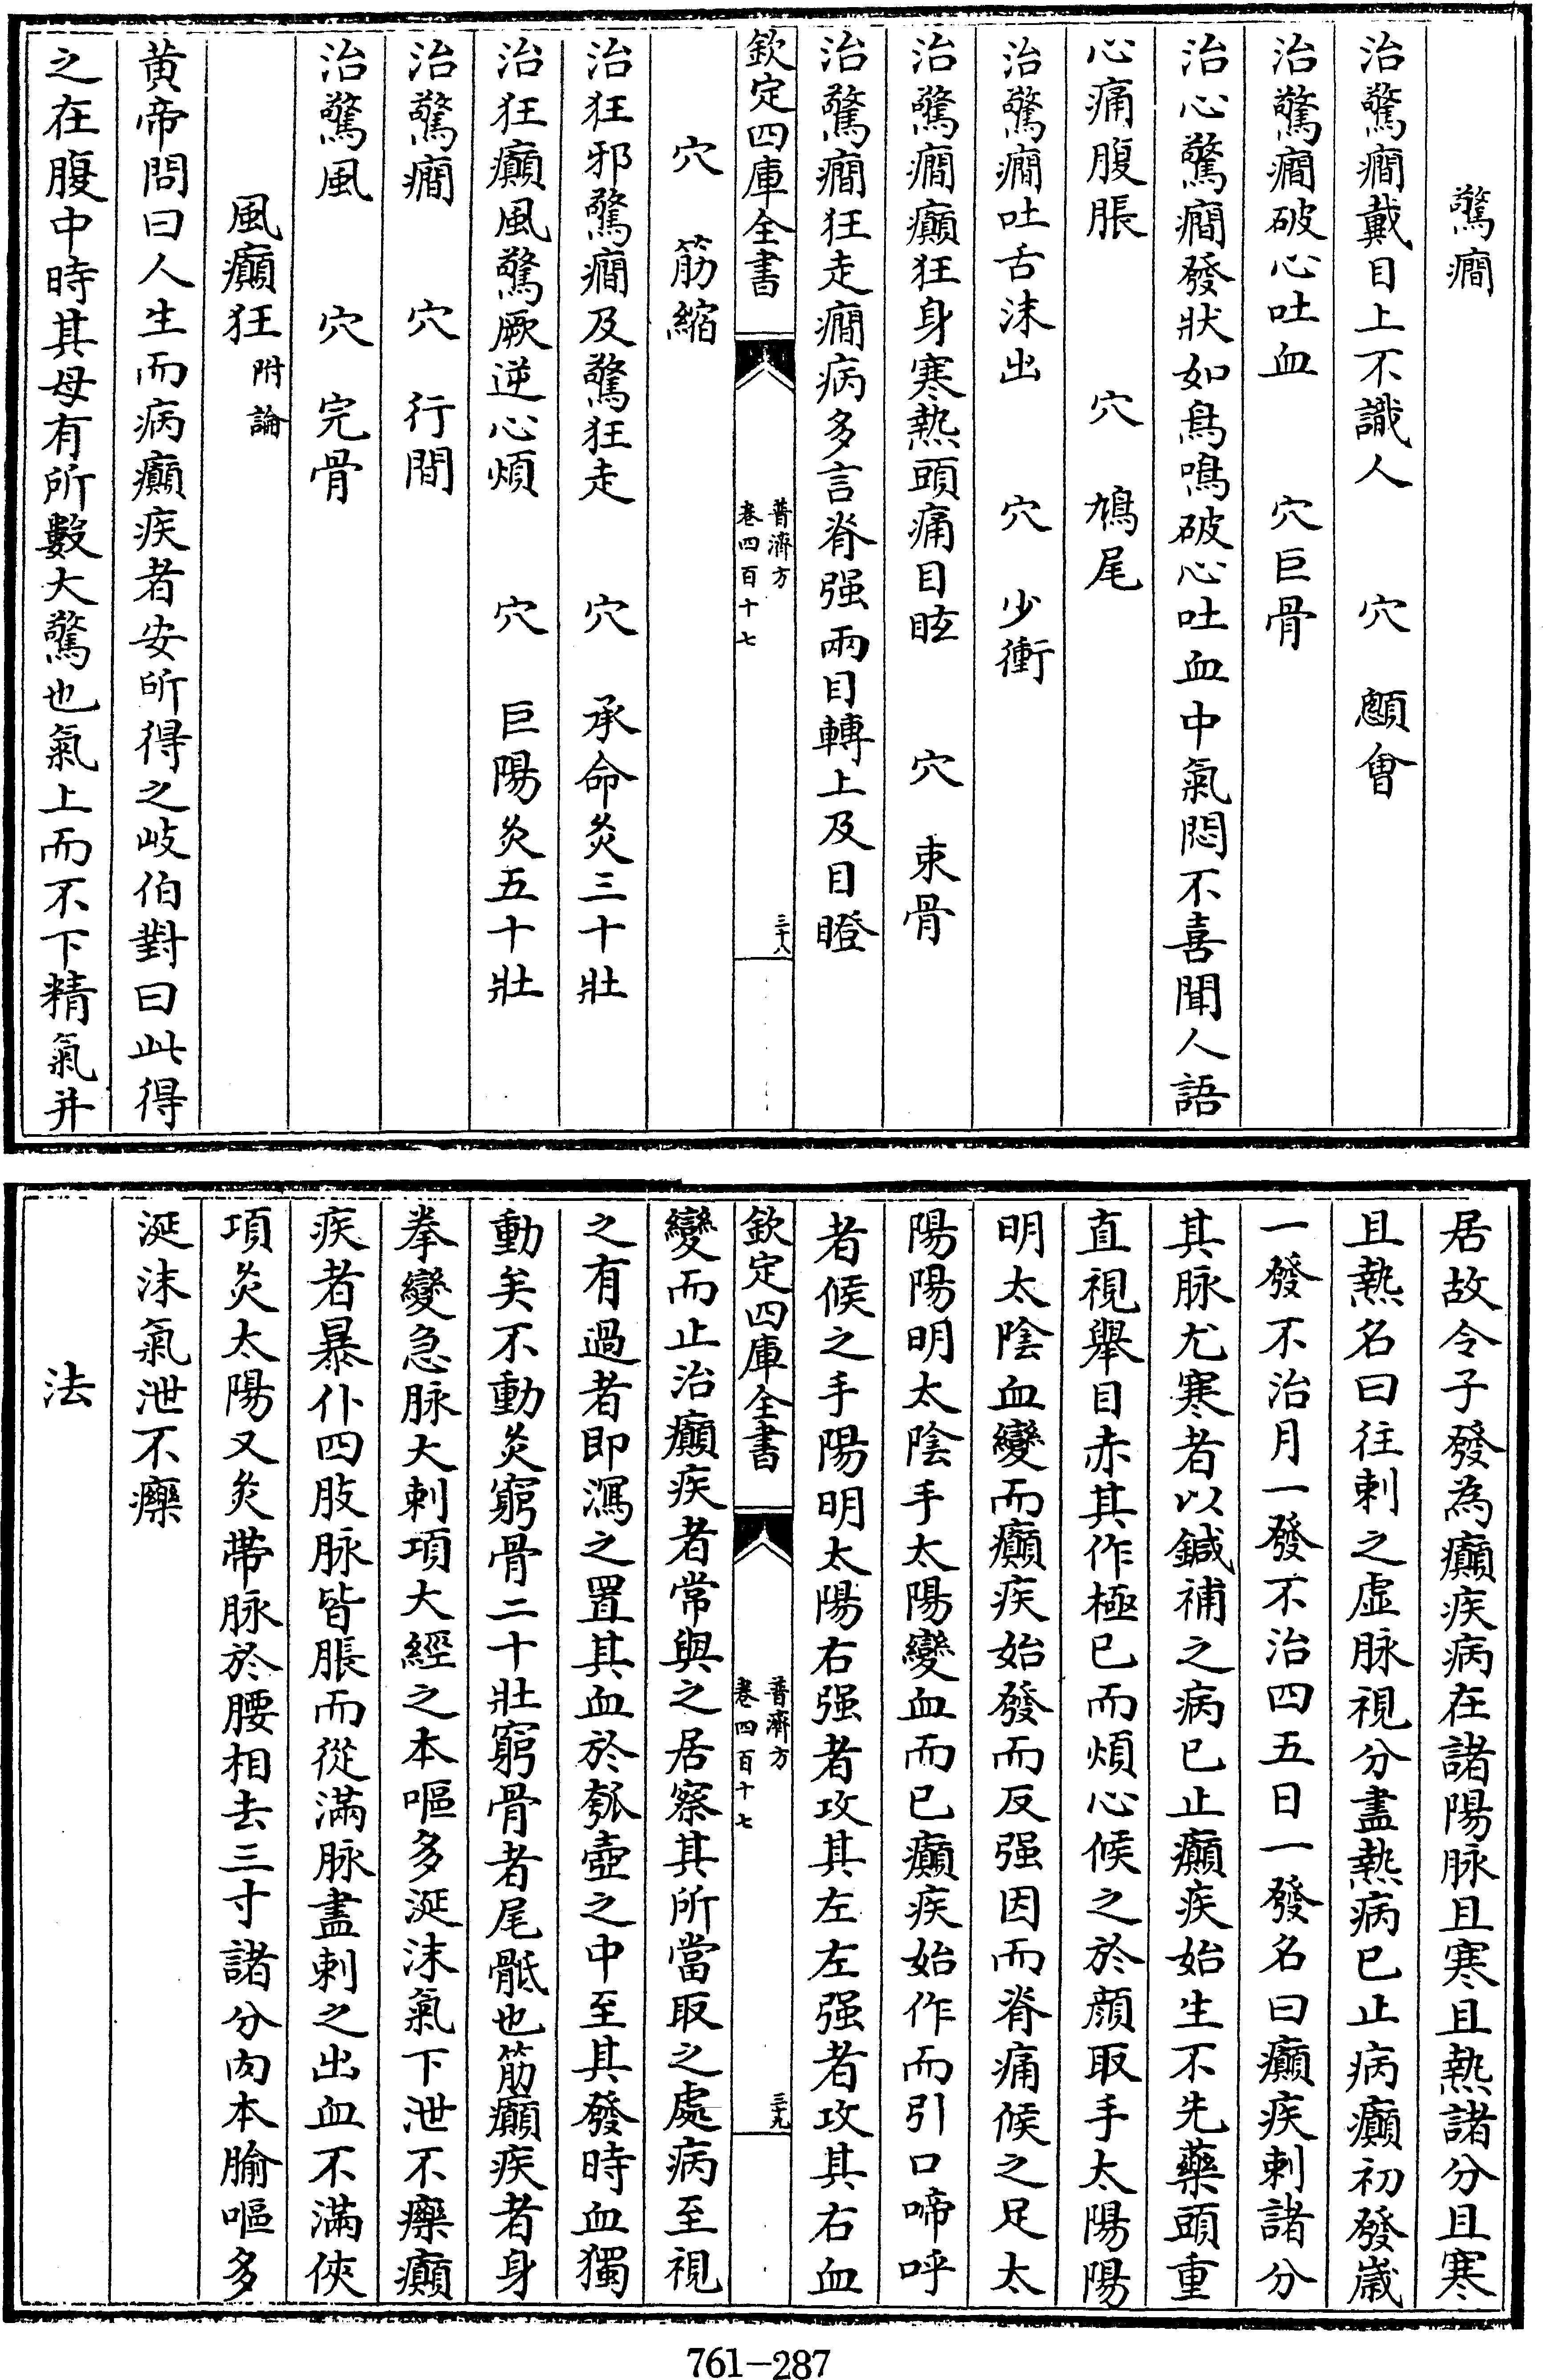 驚癎
治驚癎戴目上不識人　穴　顖會
治驚癎破心吐血　穴巨骨
治心驚癎發狀如鳥鳴破心吐血中氣悶不喜聞人語
心痛腹脹　穴　鳩尾
治驚癎吐舌沫出　穴　少衝
治驚癎癲狂身寒熱頭痛目眩　穴　束骨
治驚癎狂走癎病多言脊强兩目轉上及目瞪
欽定四庫全書　普濟方　卷四百十七　三十八
穴　筋縮
治狂邪驚癎及驚狂走　穴　承命灸三十壯
治狂癲風驚厥逆心煩　穴　巨陽灸五十壯
治驚癎　穴　行間
治驚風　穴　完骨
風癲狂附論
黃帝問曰人生而病癲疾者安所得之岐伯對曰此得
之在腹中時其母有所數大驚也氣上而不下精氣并
居故令子發為癲疾病在諸陽脉且寒且熱諸分且寒
且熱名曰往刺之虛脉視分盡熱病已止病癲初發歲
一發不治月一發不治四五日一發名曰癲疾刺諸分
其脉尤寒者以鍼補之病已止癲疾始生不先藥頭重
直視舉目赤其作極已而煩心候之於顔取手太陽陽
明太陰血變而癲疾始發而反强因而脊痛候之足太
陽陽明太陰手太陽變血而已癲疾始作而引口啼呼
者候之手陽明太陽右强者攻其左左强者攻其右血
欽定四庫全書　普濟方　卷四百十七　三十九
變而止治癲疾者常與之居察其所當取之處病至視
之有過者即瀉之置其血於瓠壺之中至其發時血獨
動矣不動灸窮骨二十壯窮骨者尾骶也筋癲疾者身
拳攣急脉大刺項大經之本嘔多涎沫氣下泄不療癲
疾者暴仆四肢脉皆脹而從滿脉盡刺之出血不滿俠
項灸太陽又灸帶脉於腰相去三寸諸分肉本腧嘔多
涎沫氣泄不療
法
761-287